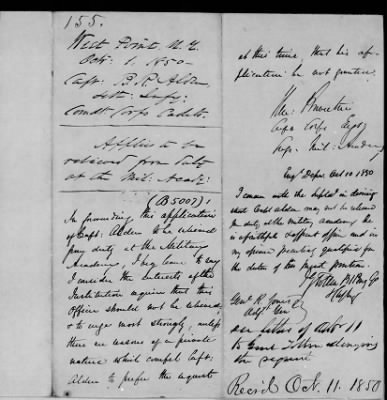 155.
West Point, N.Y.
Oct. 1. 1850
Capt. B. R. Alden
4th Infy.
Comdt Corps Cadets.
Applies to be
relieved from duty
at the Mil. Acady.
(B5007) 1
In forwarding this application
of Capt. Alden to be relieved
from duty at the Military
Academy, I beg leave to say
I consider the interests of the
Institution require that this
Officer should not be relieved,
& to urge most strongly, unless
there are reasons of a private
nature which compel Capt.
Alden to prefer the request
at this time, that his ap-
plication be not granted.
Brewerton
Capt Corps Engrs
Military Academy
Engr Depar Oct 10 1850
I concur with the Supt in desiring
that Capt Alden may not be relieved
from duty at the military academy he
is a faithful & efficient officer and in
my opinion peculiarly qualified for
the duties of his present position.
Genl R. Jones
Adjt Genl
see letter of
to Genl Totten
the request
Rec'd Oct. 11. 1850